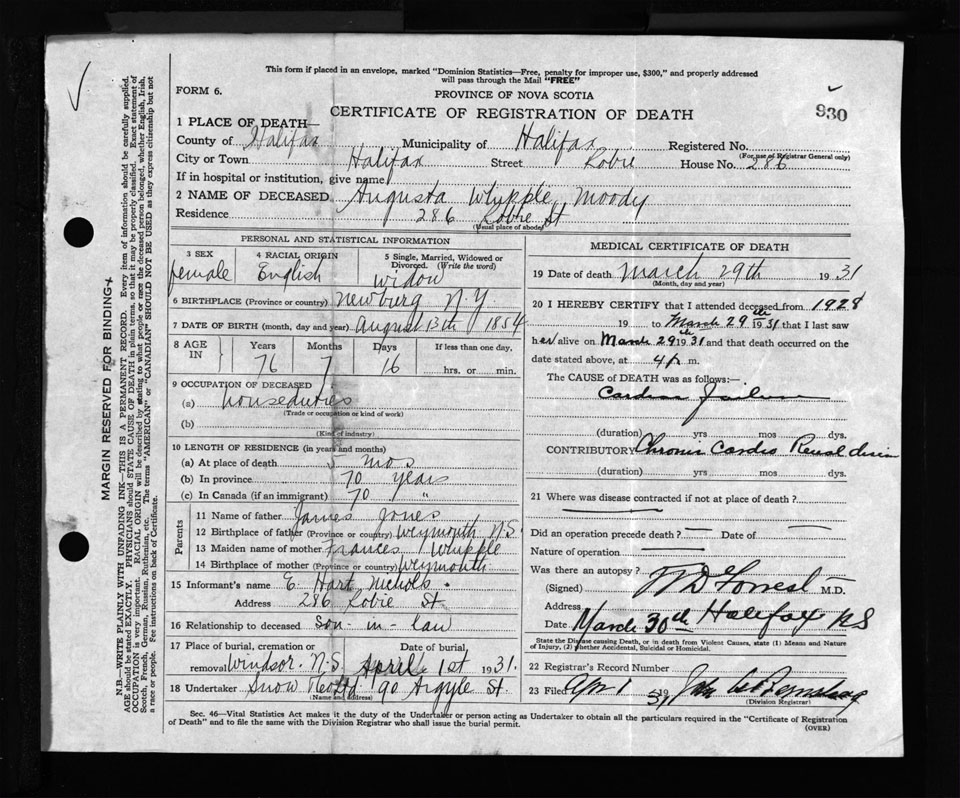 This form if placed in an envelope, marked "Dominion Statistics—Free, penalty for improper use, $300," and properly addressed
will pass through the Mail "FREE"
FORM 6.
PROVINCE OF NOVA SCOTIA
930
CERTIFICATE OF REGISTRATION OF DEATH
1 PLACE OF DEATH—
County of Halifax Municipality of Halifax Registered No.
(For use of Registrar General only)
City or Town Halifax Street Robie House No. 286
If in hospital or institution, give name
2 NAME OF DECEASED Augusta Whipple Moody
Residence 286 Robie St
(Usual place of abode)
PERSONAL AND STATISTICAL INFORMATION
3 SEX
female
4 RACIAL ORIGIN
English
5 Single, Married, Widowed or
Divorced. (Write the word)
widow
6 BIRTHPLACE (Province or country) Newburg N.Y.
7 DATE OF BIRTH (month, day and year) August 13th 1854
8 AGE
IN
Years Months Days If less than one day,
76 7 16 hrs. or min.
9 OCCUPATION OF DECEASED
(a) houseduties
(Trade or occupation or kind of work)
(b)
(Kind of industry)
10 LENGTH OF RESIDENCE (in years and months)
(a) At place of death 5 mos
(b) In province 70 years
(c) In Canada (if an immigrant) 70 "
Parents
11 Name of father James Jones
12 Birthplace of father (Province or country) Weymouth N.S.
13 Maiden name of mother Frances Whipple
14 Birthplace of mother (Province or country) Weymouth
15 Informant's name E. Hart Nichols
Address 286 Robie St
16 Relationship to deceased Son-in-law
17 Place of burial, cremation or Date of burial,
removal Windsor. N.S April 1st 1931.
18 Undertaker Snow & Co Ltd 90 Argyle St.
(Name and address)
MEDICAL CERTIFICATE OF DEATH
19 Date of death March 29th 1931
(Month, day and year)
20 I HEREBY CERTIFY that I attended deceased from 1928
19 to March 29th 1931 that I last saw
her alive on March 29 1931 and that death occurred on the
date stated above, at 4 p m.
The CAUSE OF DEATH was as follows:—
Cardiac Failure
(duration) yrs mos dys.
CONTRIBUTORY Chronic Cardio Renal disease
(duration) yrs mos dys.
21 Where was disease contracted if not at place of death?
Did an operation precede death? Date of
Nature of operation
Was there an autopsy?
(Signed) Forrest M.D.
Address
Date March 30th Halifax NS
State the Disease causing Death, or in death from Violent Causes, state (1) Means and Nature
of Injury, (2) whether Accidental, Suicidal or Homicidal.
22 Registrar's Record Number
23 Filed Apr 1 1931
(Division Registrar)
Sec. 46—Vital Statistics Act makes it the duty of the Undertaker or person acting as Undertaker to obtain all the particulars required in the "Certificate of Registration
of Death" and to file the same with the Division Registrar who shall issue the burial permit.
(OVER)
MARGIN RESERVED FOR BINDING
N.B.—WRITE PLAINLY WITH UNFADING INK—THIS IS A PERMANENT RECORD. Every item of information should be carefully supplied.
AGE should be stated EXACTLY. PHYSICIANS should STATE CAUSE OF DEATH in plain terms, so that it may be properly classified. Exact statement of
OCCUPATION is very important. RACIAL ORIGIN will be described by stating to what people or race the deceased person belonged, whether English, Irish,
Scotch, French, German, Russian, Ruthenian, etc. The terms "AMERICAN" or "CANADIAN" SHOULD NOT BE USED as they express citizenship but not
a race or people. See instructions on back of Certificate.